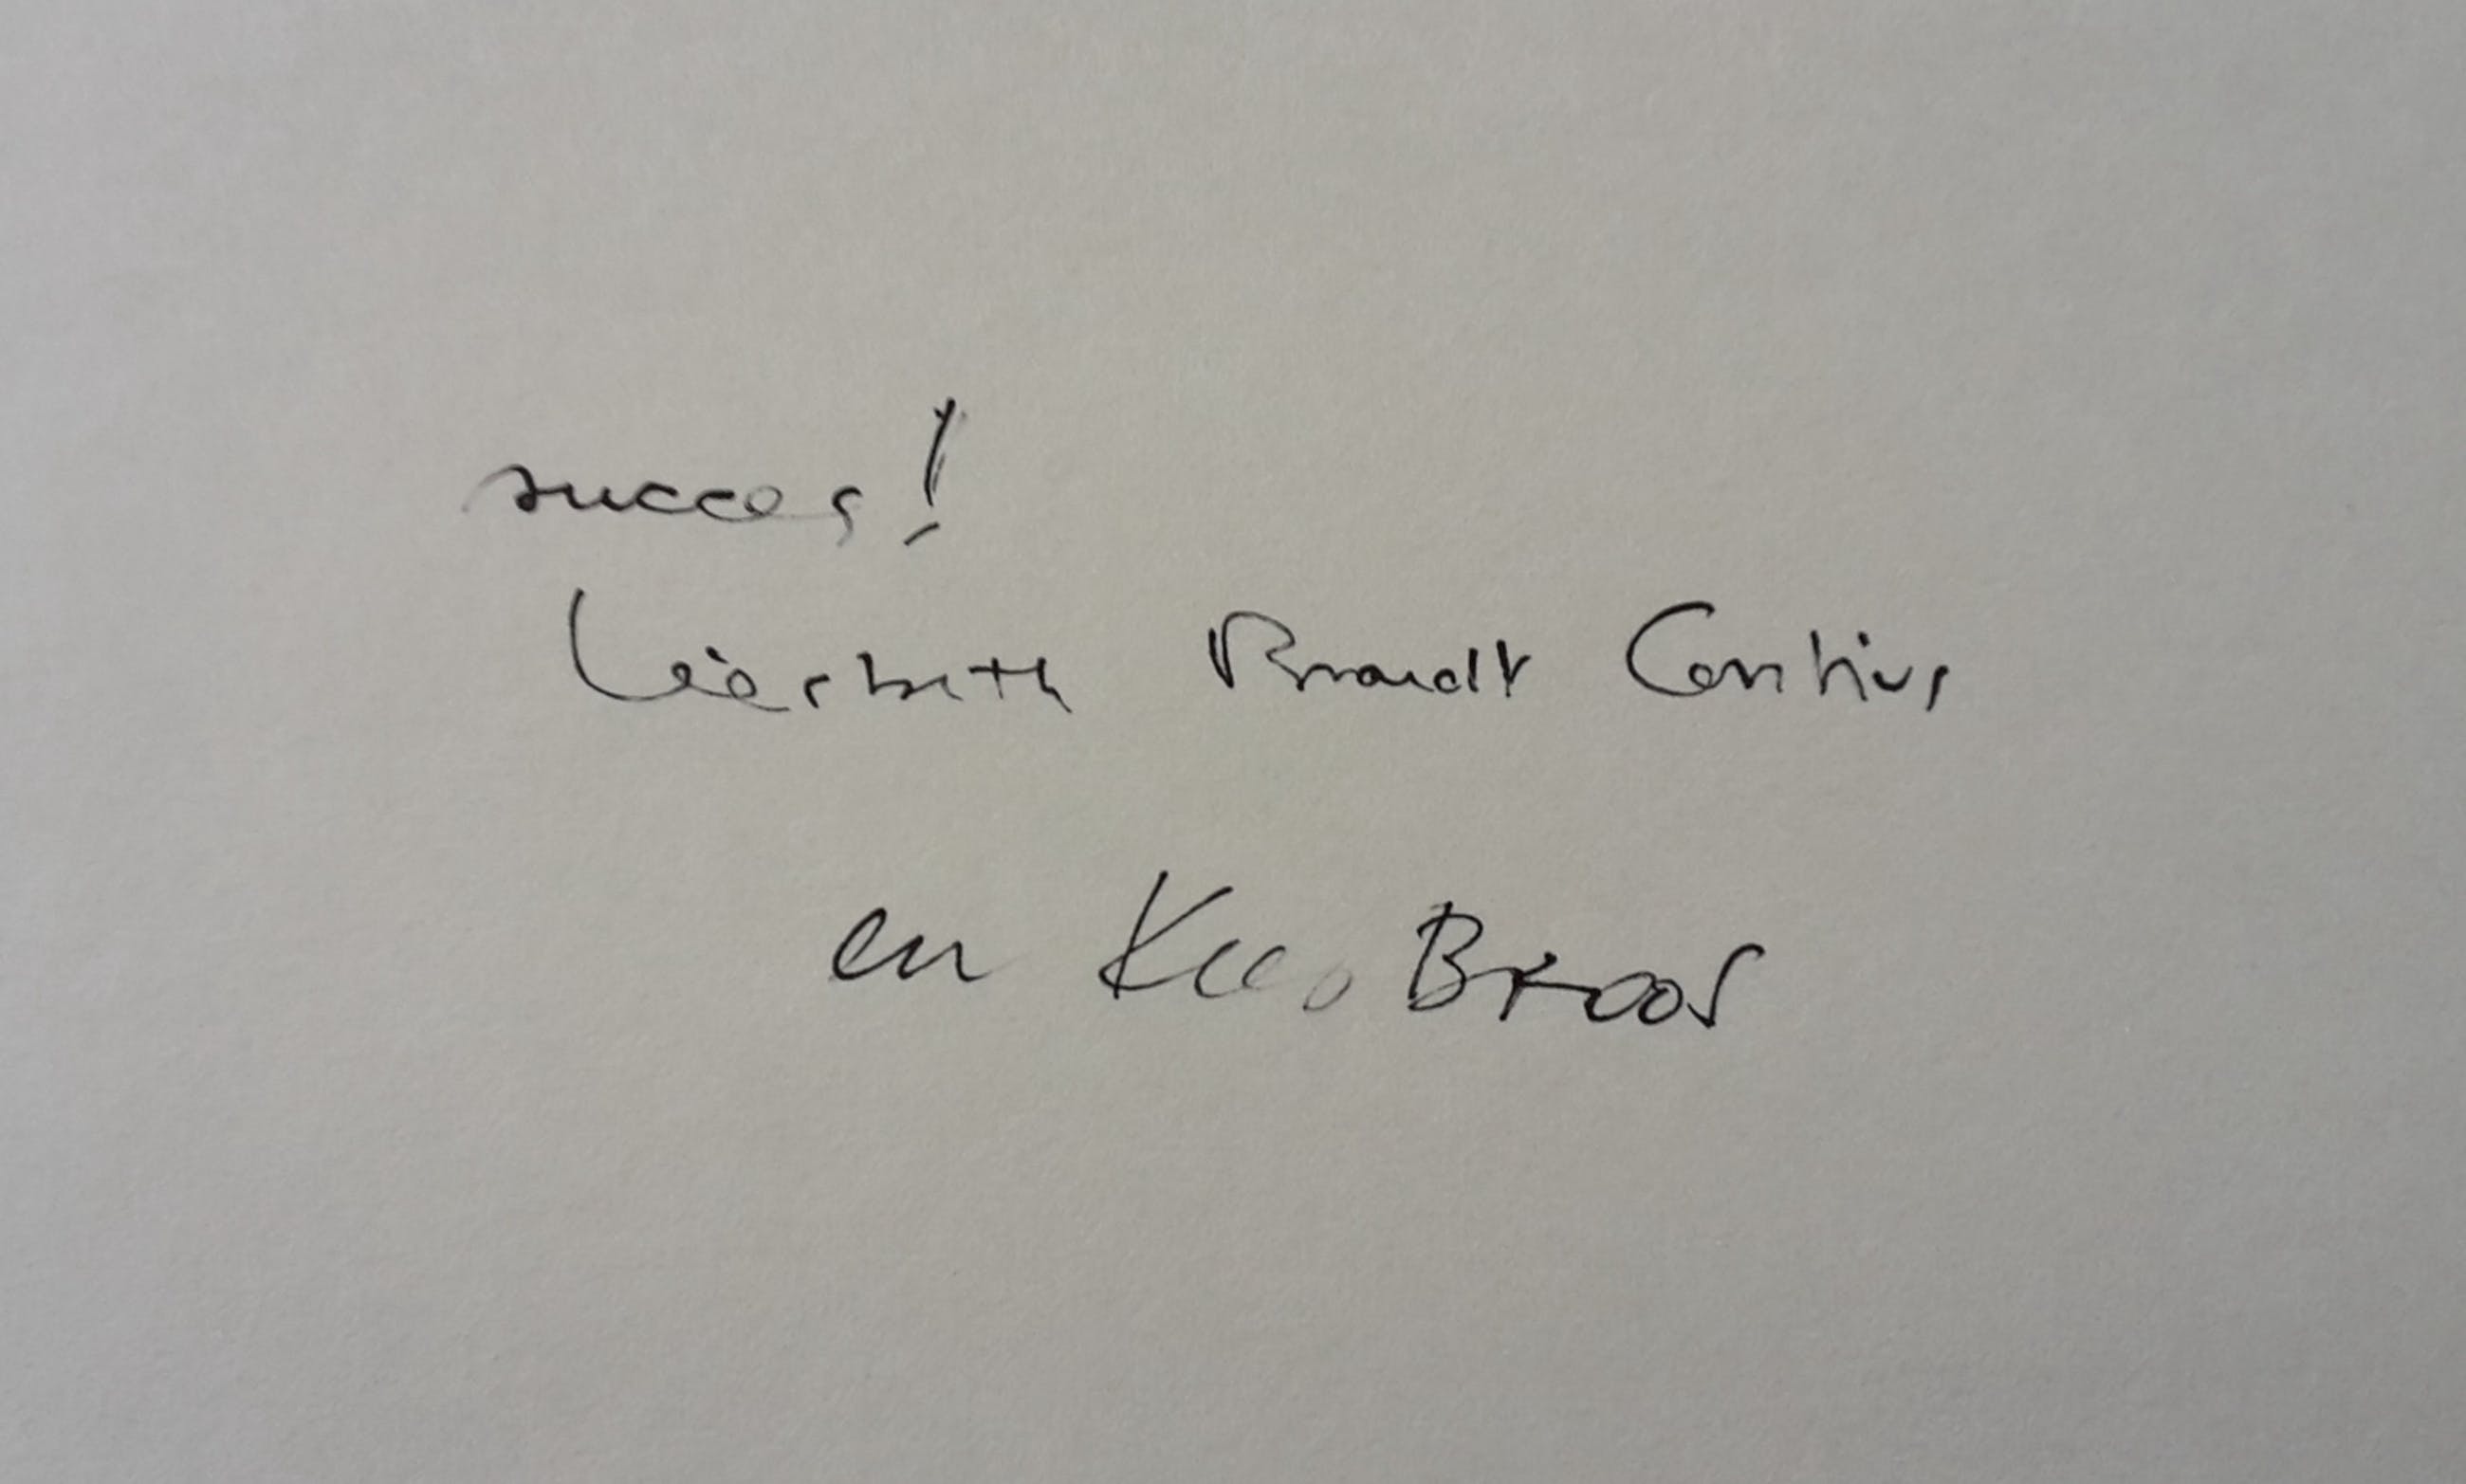 succes!
Liesbeth Brandt Corstius
en Kees Broos